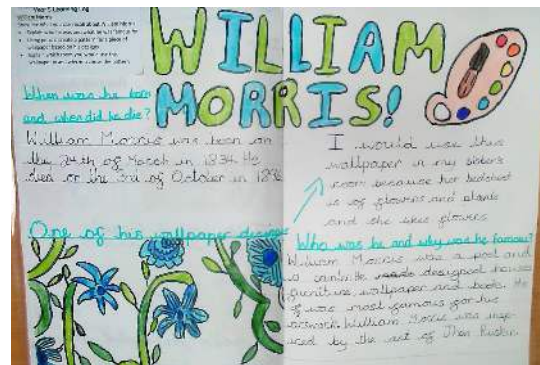 Year 5 Learning Log
William Morris
WILLIAM
MORRIS!
When was he born
and when did he die?
William Morris was born on
the 24th of March in 1834. He
died on the 3rd of October in 1896
One of his wallpaper designs
I would use this
wallpaper in my sisters
room because her bedshed
is of flowers and plants
and she likes flowers
Who was he and why was he famous?
William Morris was a poet and
designed houses
furniture, wallpaper and books. He
was most famous for his
artwork. William Morris was insp-
ired by the art of Jhon Ruskin.